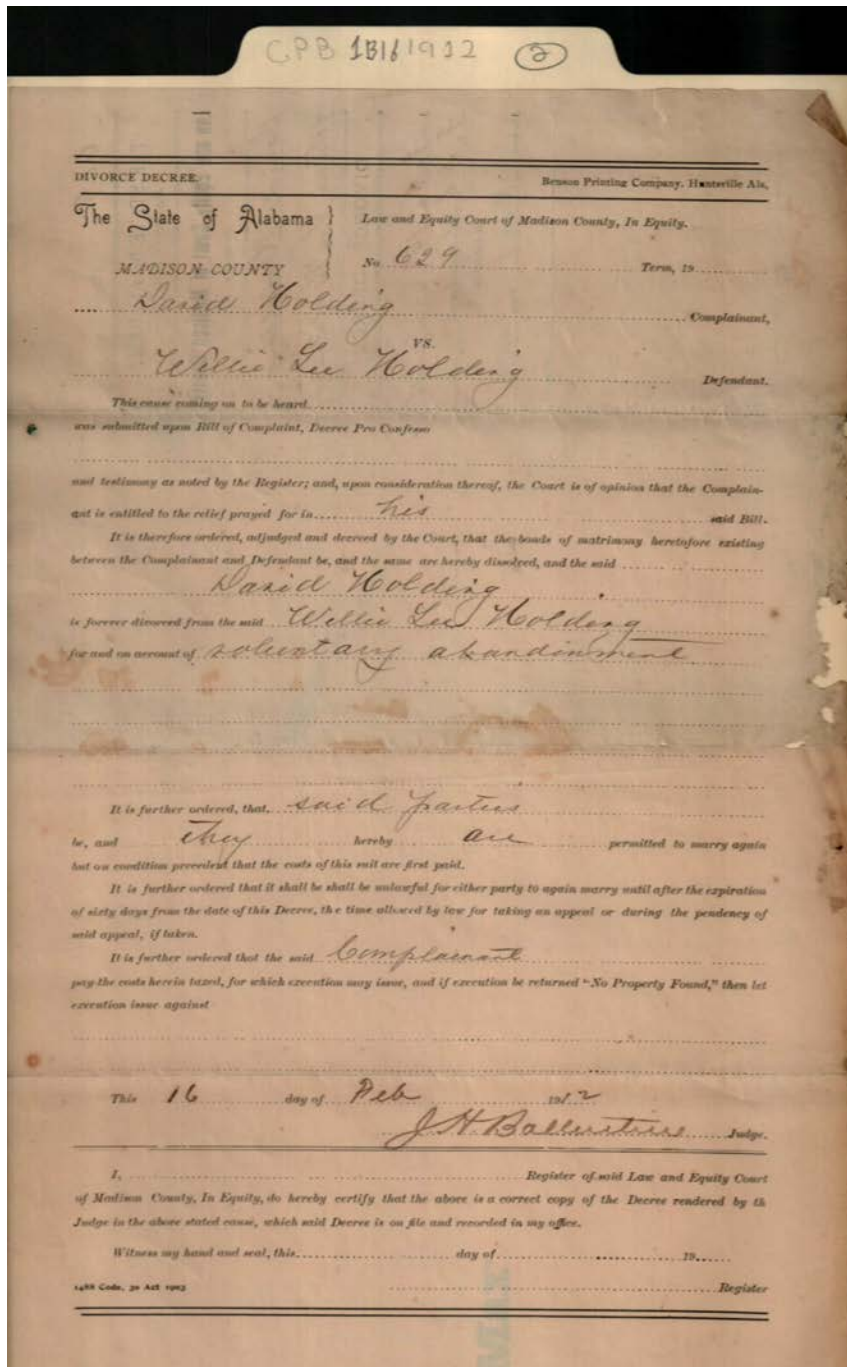 CPB 1B16 1912 2
DIVORCE DECREE. Benson Printing Company, Huntsville Ala,
The State of Alabama } Law and Equity Court of Madison County, In Equity.
MADISON COUNTY No 629 Term, 19
David Holding Complainant,
VS.
Willie Lee Holding Defendant.
This cause coming on to be heard
was submitted upon Bill of Complaint, Decree Pro Confesso
and testimony as noted by the Register; and, upon consideration thereof, the Court is of opinion that the Complain-
ant is entitled to the relief prayed for in his said Bill.
It is therefore ordered, adjudged and decreed by the Court, that the bonds of matrimony heretofore existing
between the Complainant and Defendant be, and the same are hereby dissolved, and the said
David Holding
is forever divorced from the said Willie Lee Holding
for and on account of voluntary abandonment
It is further ordered, that, said parties
be, and they hereby are permitted to marry again
but on condition precedent that the costs of this suit are first paid.
It is further ordered that it shall be shall be unlawful for either party to again marry until after the expiration
of sixty days from the date of this Decree, the time allowed by law for taking an appeal or during the pendency of
said appeal, if taken.
It is further ordered that the said Complainant
pay the costs herein taxed, for which execution may issue, and if execution be returned "No Property Found," then let
execution issue against
This 16 day of Feb 1912
J. H. Ballentine Judge.
I, Register of said Law and Equity Court
of Madison County, In Equity, do hereby certify that the above is a correct copy of the Decree rendered by th
Judge in the above stated cause, which said Decree is on file and recorded in my office.
Witness my hand and seal, this day of 19
1488 Code, 30 Act 1903 Register